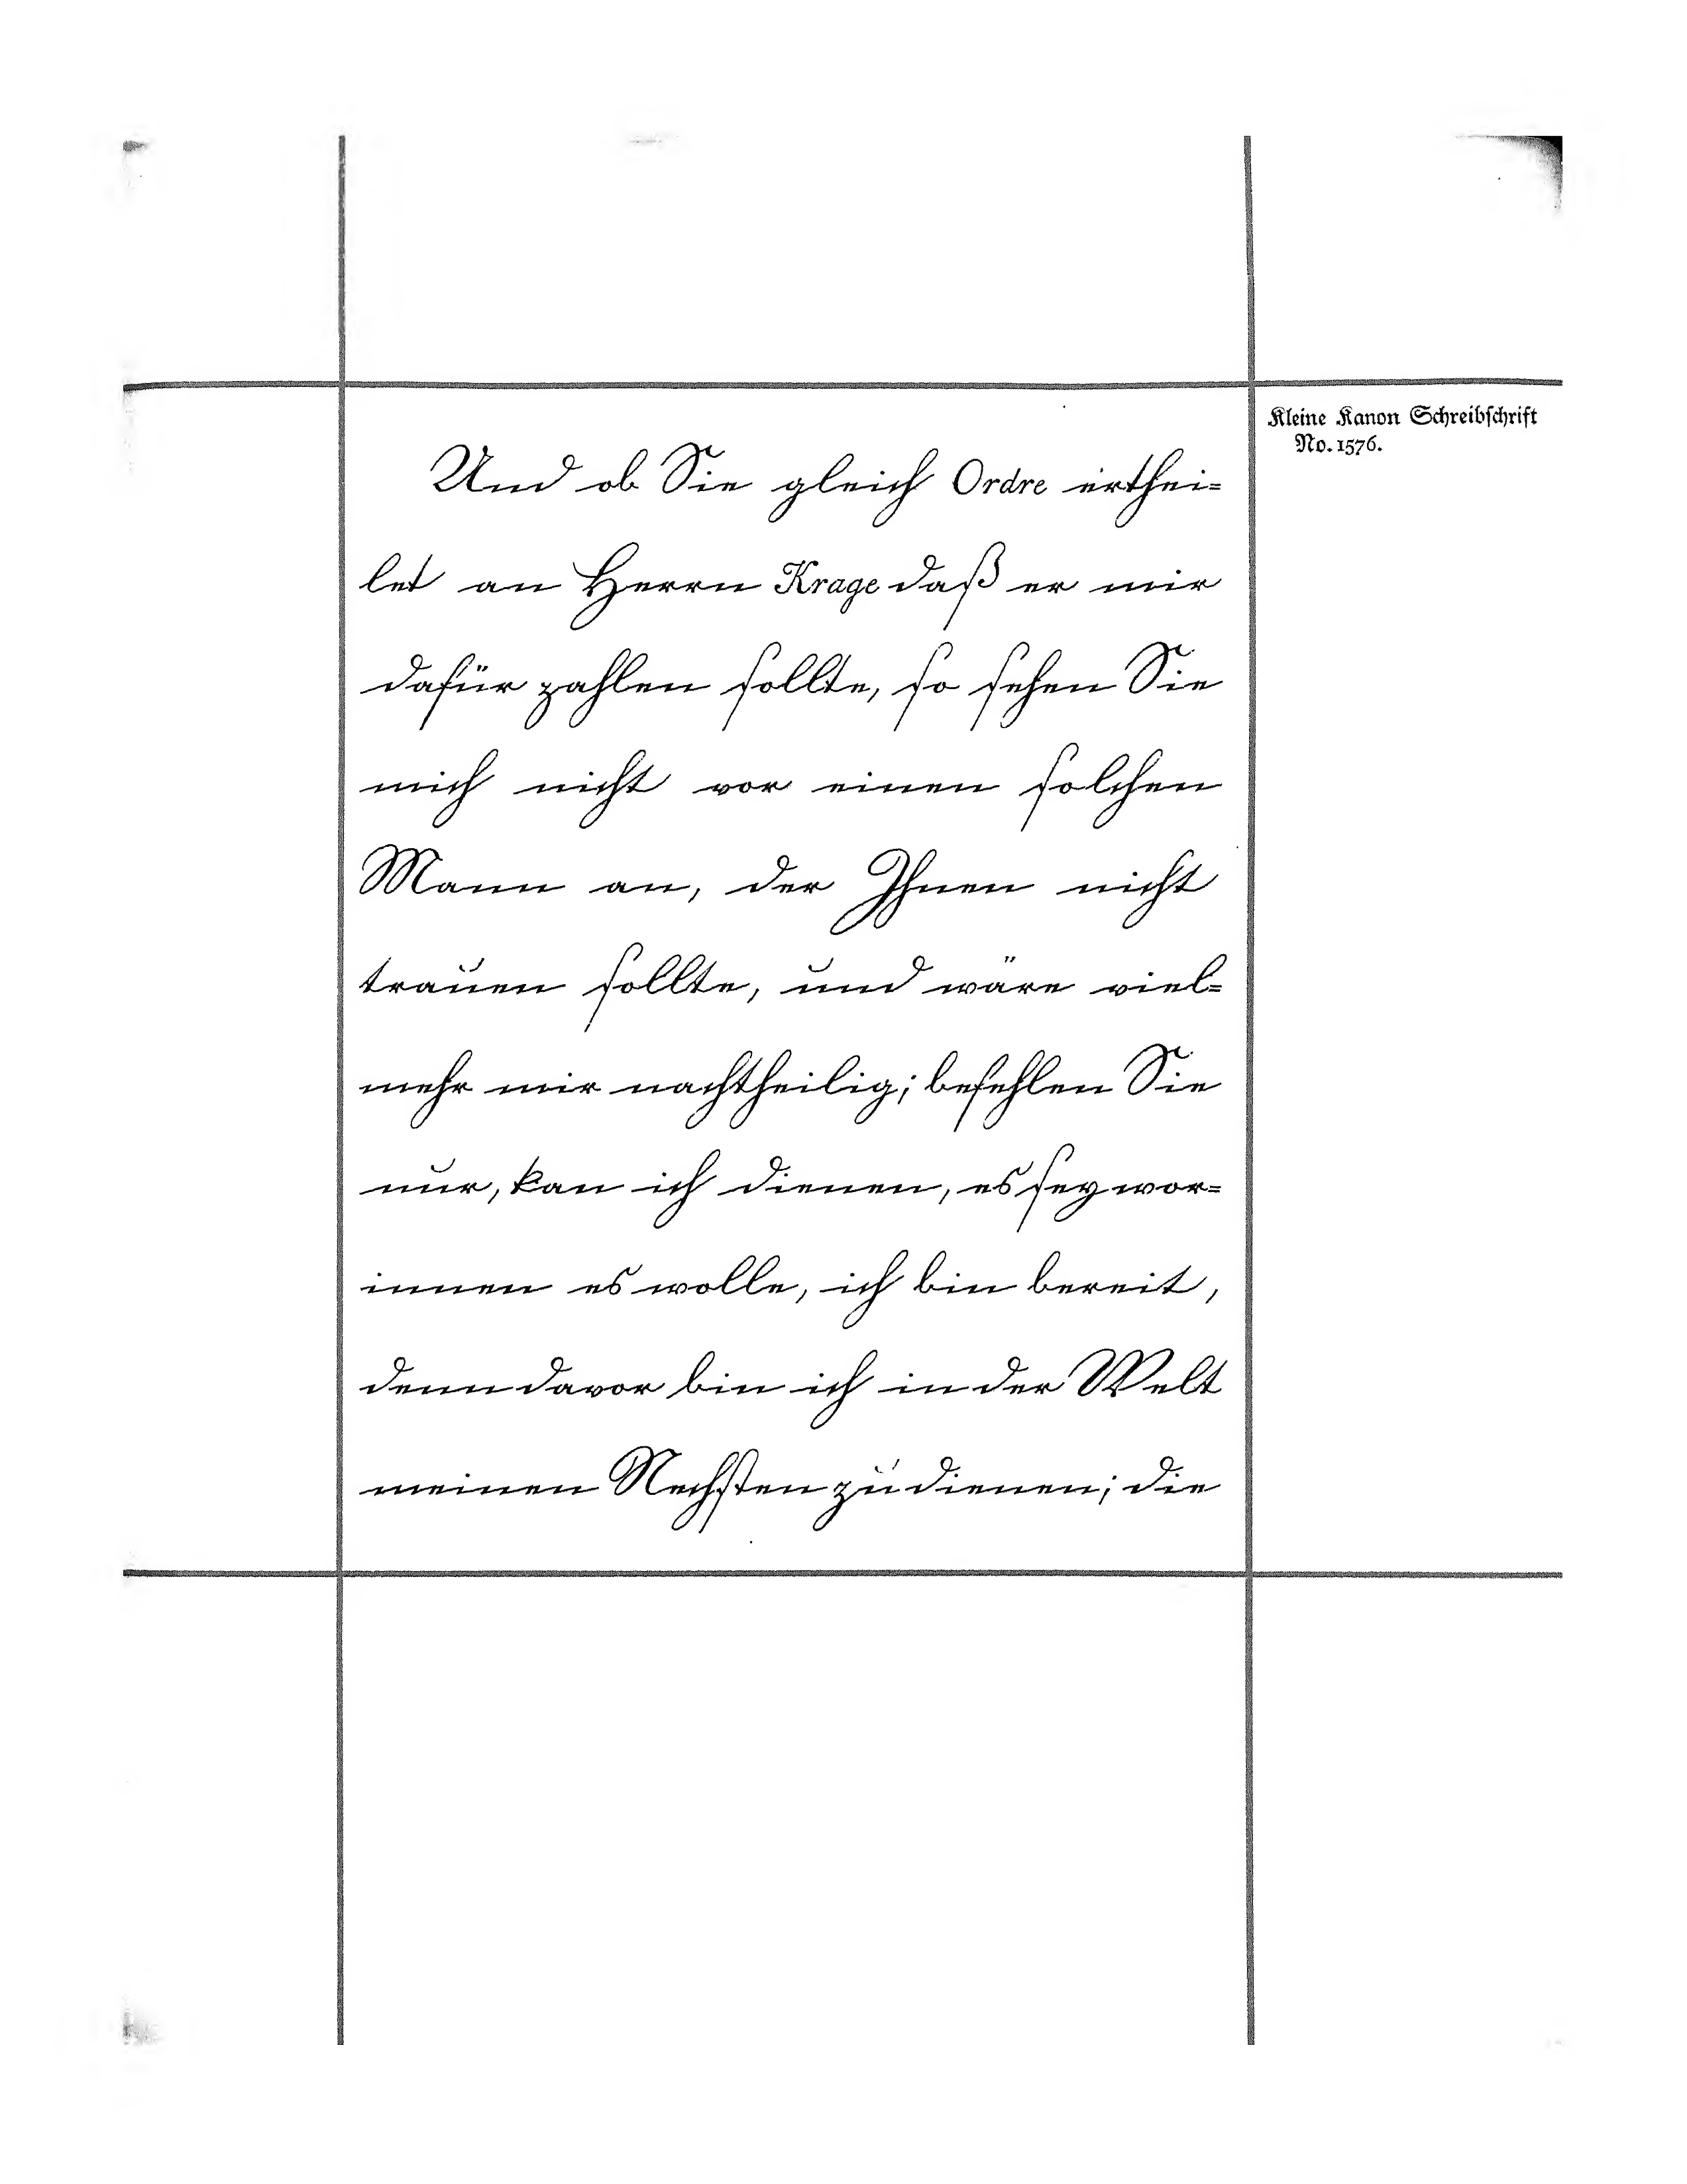 Kleine Kanon Schreibschrift
No. 1576.
Und ob Sie gleich Ordre erthei=
let an Herrn Krage daß er mir
dafür zahlen sollte, so sehen Sie
mich nicht vor einen solchen
Mann an, der Ihnen nicht
trauen sollte, und wäre viel=
mehr mir nachtheilig; befehlen Sie
nur, kan ich dienen, es sey wor=
innen es wolle, ich bin bereit,
denn davor bin ich in der Welt
meinen Nechsten zu dienen; die